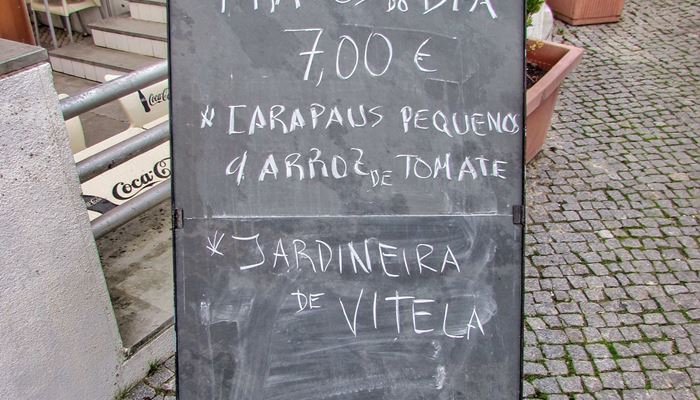 PRATOS DO DIA
7,00 €
* CARAPAUS PEQUENOS
C/ ARROZ DE TOMATE
* JARDINEIRA
DE VITELA
Coca-Cola
Coca-Cola